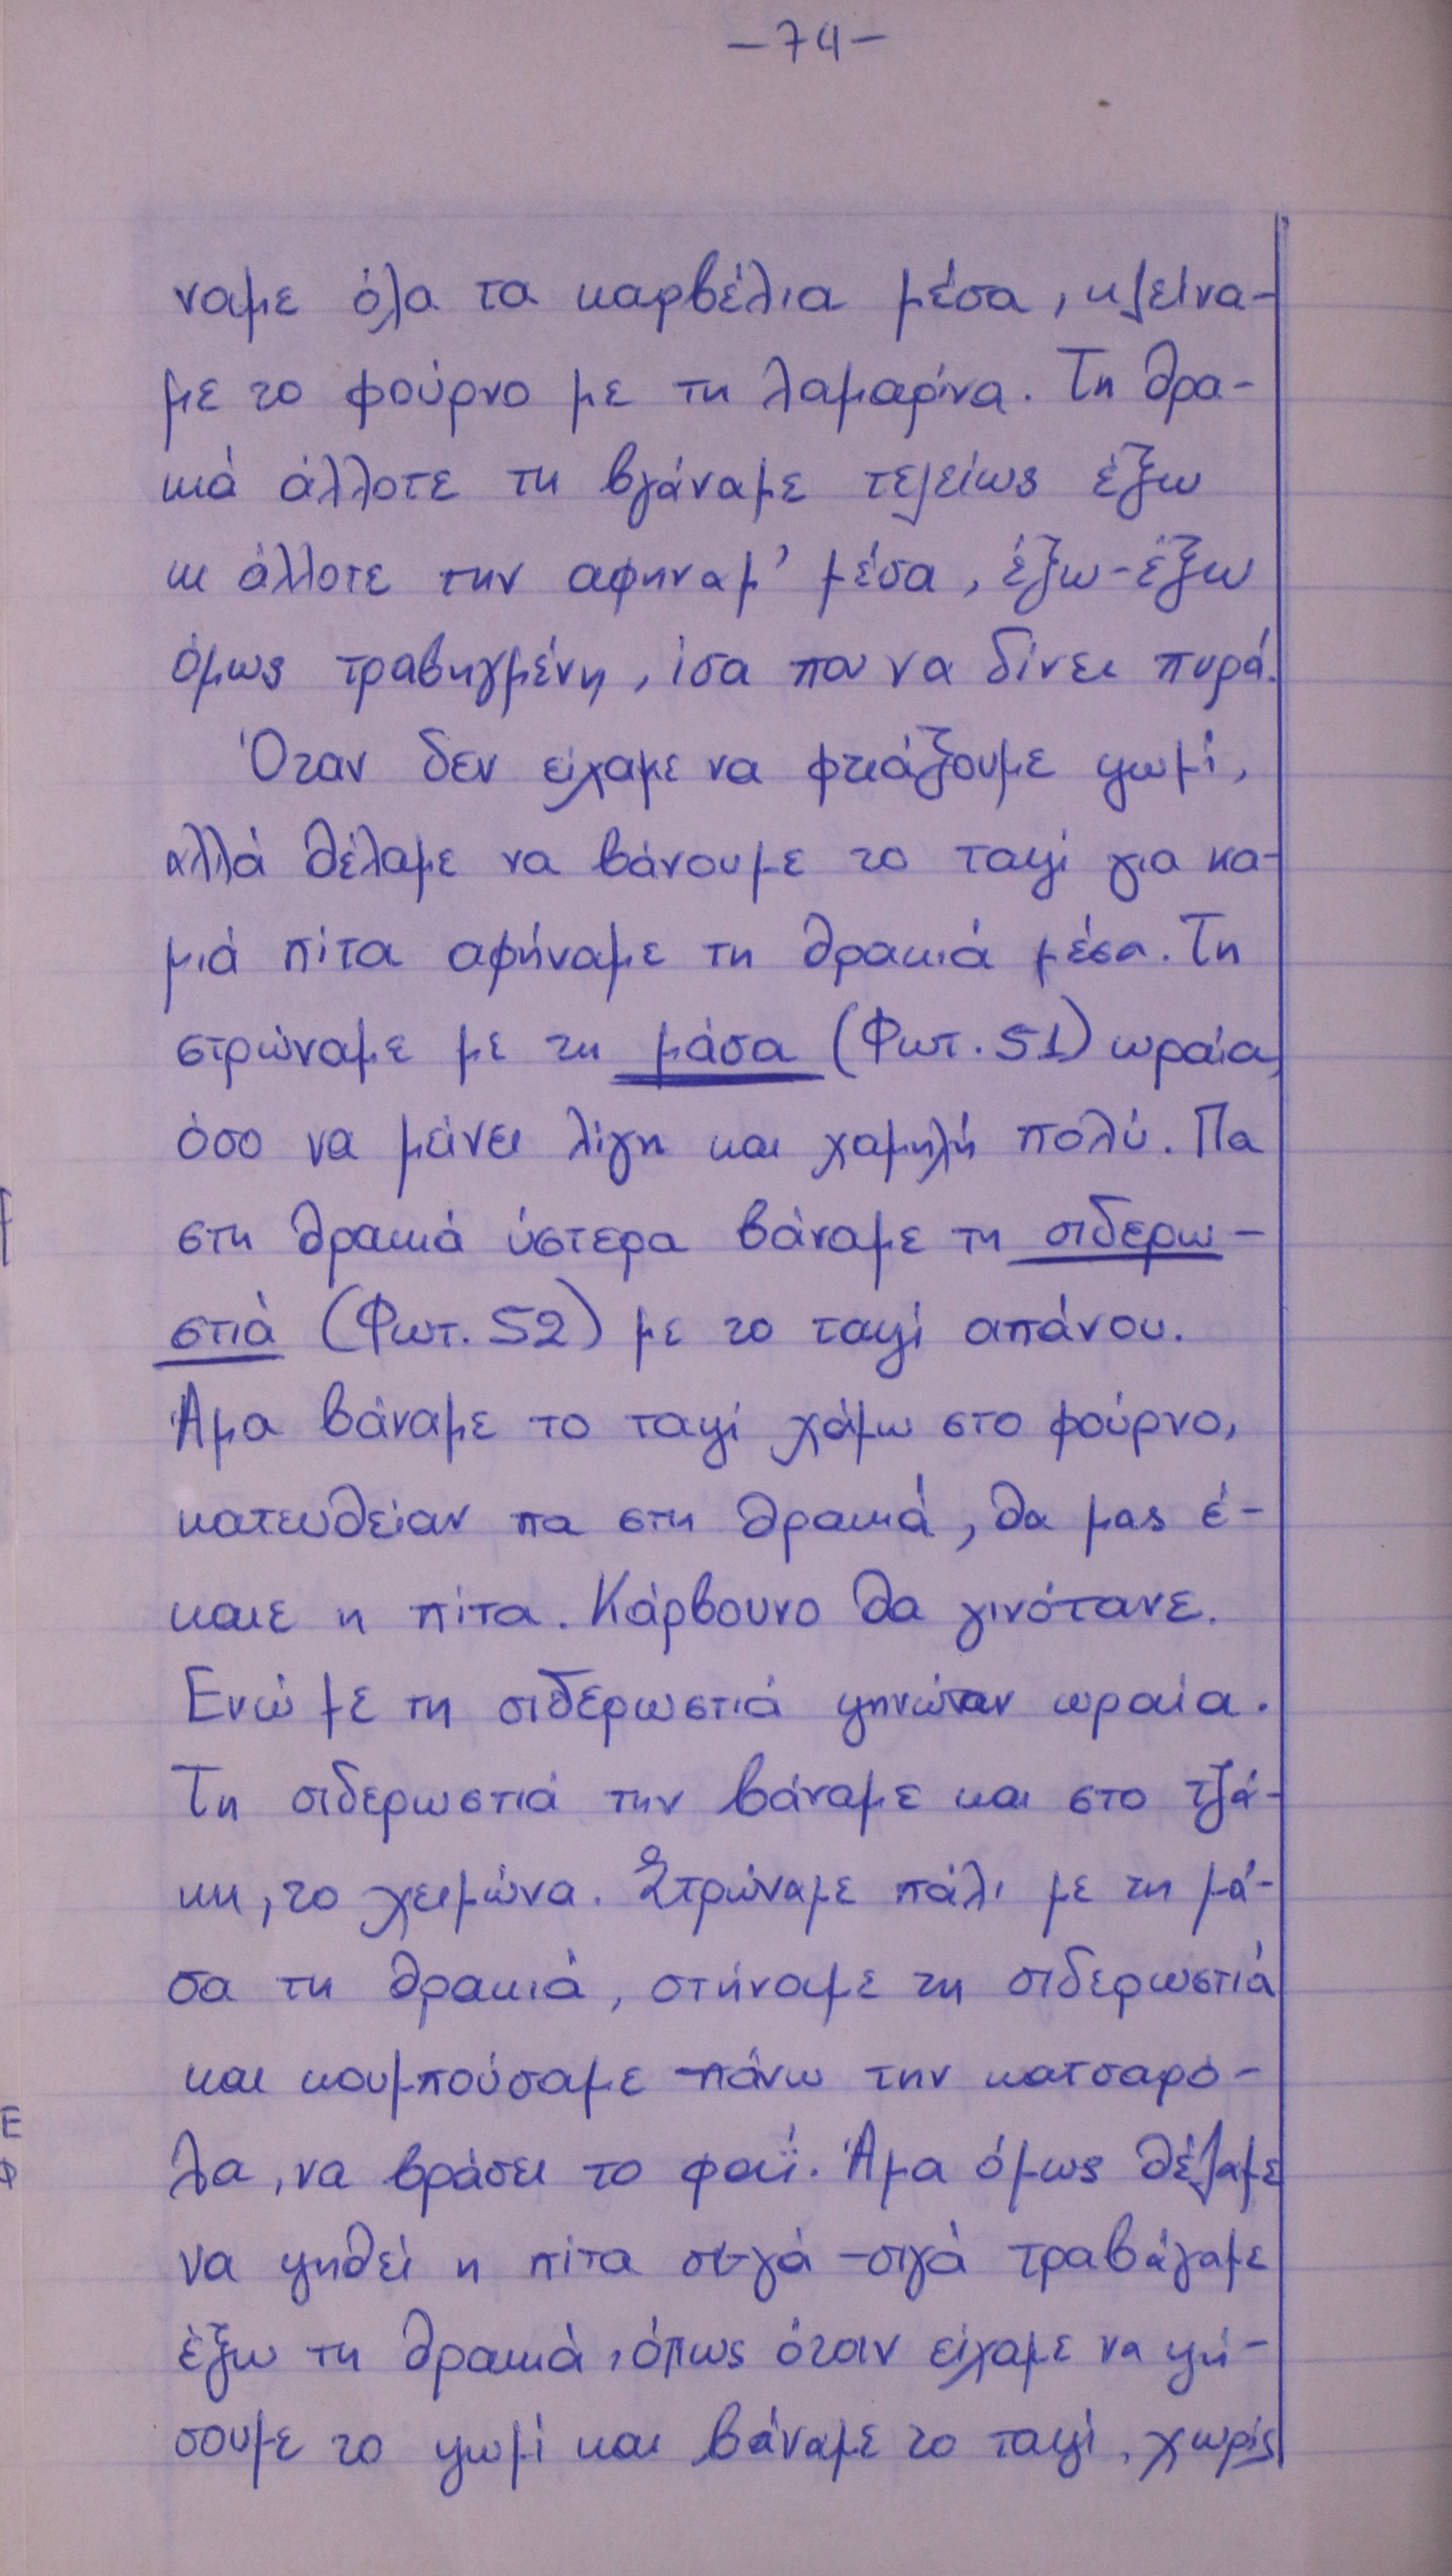 -74-
ναμε όλα τα καρβέλια μέσα, κλείνα-
με το φούρνο με τη λαμαρίνα. Τη θρα-
κιά άλλοτε τη βγάναμε τελείως έξω
κι άλλοτε την αφηναμ' μέσα, έξω-έξω
όμως τραβηγμένη, ίσα που να δίνει πυρά.
Όταν δεν είχαμε να φτιάξουμε ψωμί,
αλλά θέλαμε να βάνουμε το ταψί για κα-
μιά πίτα αφήναμε τη θρακιά μέσα. Τη
στρώναμε με τη μάσα (Φωτ. 51) ωραία,
όσο να μείνει λίγη και χαμηλή πολύ. Πα
στη θρακιά ύστερα βάναμε τη σιδερω-
στιά (Φωτ. 52) με το ταψί απάνου.
Άμα βάναμε το ταψί χάμω στο φούρνο,
κατευθείαν πα στη θρακιά, θα μας έ-
καιε η πίτα. Κάρβουνο θα γινότανε.
Ενώ με τη σιδερωστιά ψηνώταν ωραία.
Τη σιδερωστιά την βάναμε και στο τζά-
κι, το χειμώνα. Στρώναμε πάλι με τη μά-
σα τη θρακιά, στήναμε τη σιδερωστιά
και κουμπούσαμε πάνω την κατσαρό-
λα, να βράσει το φαΐ. Άμα όμως θέλαμε
να ψηθεί η πίτα σιγά-σιγά τραβάγαμε
έξω τη θρακιά, όπως όταν είχαμε να ψή-
σουμε το ψωμί και βάναμε το ταψί, χωρίς